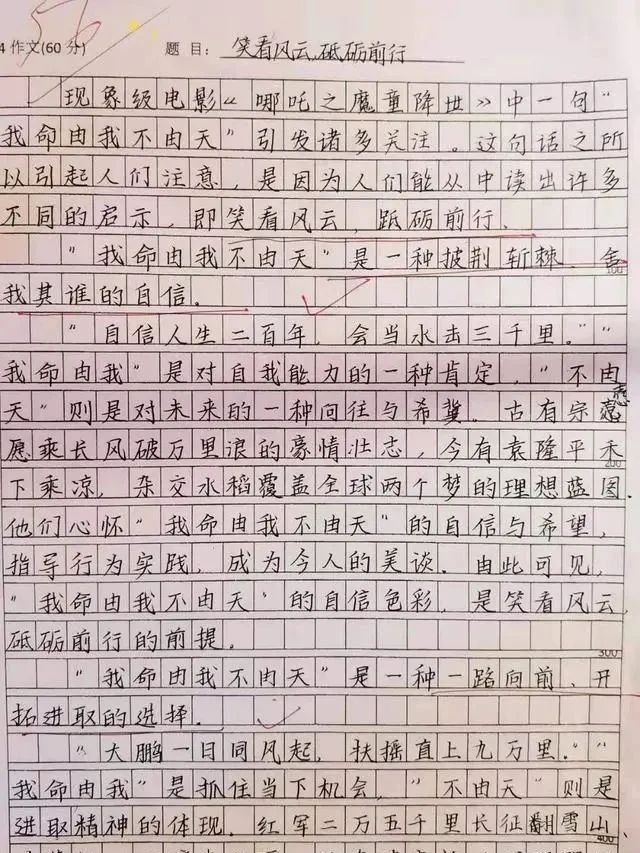 56
4 作文(60分) 题 目： 笑看风云,砥砺前行
现象级电影《哪吒之魔童降世》中一句"
我命由我不由天"引发诸多关注。这句话之所
以引起人们注意，是因为人们能从中读出许多
不同的启示，即笑看风云，砥砺前行。
"我命由我不由天"是一种披荆斩棘、舍
100
我其谁的自信。
"自信人生二百年，会当水击三千里。""
我命由我"是对自我能力的一种肯定，"不由
天"则是对未来的一种向往与希冀。古有宗悫
愿乘长风破万里浪的豪情壮志，今有袁隆平禾
200
下乘凉，杂交水稻覆盖全球两个梦的理想蓝图。
他们心怀"我命由我不由天"的自信与希望，
指导行为实践，成为今人的美谈。由此可见，
"我命由我不由天"的自信色彩，是笑看风云，
砥砺前行的前提。
300
"我命由我不由天"是一种一路向前、开
拓进取的选择。
"大鹏一日同风起，扶摇直上九万里。""
我命由我"是抓住当下机会，"不由天"则是
进取精神的体现。红军二万五千里长征翻雪山、
400